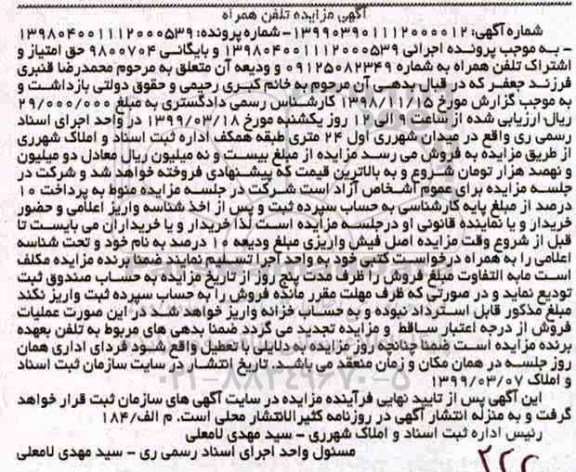 آگهی مزایده تلفن همراه
شماره آگهی: ۱۳۹۹۰۳۹۰۱۱۱۲۰۰۰۰۱۲- شماره پرونده: ۱۳۹۸۰۴۰۰۱۱۱۲۰۰۰۵۳۹
- به موجب پرونده اجرائی ۱۳۹۸۰۴۰۰۱۱۱۲۰۰۰۵۳۹ و بایگانی ۹۸۰۰۷۰۴ حق امتیاز و
اشتراک تلفن همراه به شماره ۰۹۱۲۵۰۸۲۳۴۹ و ودیعه آن متعلق به مرحوم محمدرضا قنبری
فرزند جعفر که در قبال بدهی آن مرحوم به خانم کبری رحیمی و حقوق دولتی بازداشت و
به موجب گزارش مورخ ۱۳۹۸/۱۱/۱۵ کارشناس رسمی دادگستری به مبلغ ۲۹/۰۰۰/۰۰۰
ریال ارزیابی شده از ساعت ۹ الی ۱۲ روز یکشنبه مورخ ۱۳۹۹/۰۳/۱۸ در واحد اجرای اسناد
رسمی ری واقع در میدان شهرری اول ۲۴ متری طبقه همکف اداره ثبت اسناد و املاک شهرری
از طریق مزایده به فروش می رسد مزایده از مبلغ بیست و نه میلیون ریال معادل دو میلیون
و نهصد هزار تومان شروع و به بالاترین قیمت که پیشنهادی فروخته خواهد شد و شرکت در
جلسه مزایده برای عموم اشخاص آزاد است شرکت در جلسه مزایده منوط به پرداخت ۱۰
درصد از مبلغ پایه کارشناسی به حساب سپرده ثبت و پس از اخذ شناسه واریز اعلامی و حضور
خریدار و یا نماینده قانونی او درجلسه مزایده است لذا خریدار و یا خریداران می بایست تا
قبل از شروع وقت مزایده اصل فیش واریزی مبلغ ودیعه ۱۰ درصد به نام خود و تحت شناسه
اعلامی را به همراه درخواست کتبی خود به واحد اجرا تسلیم نمایند ضمنا برنده مزایده مکلف
است مابه التفاوت مبلغ فروش را ظرف مدت پنج روز از تاریخ مزایده به حساب صندوق ثبت
تودیع نماید و در صورتی که ظرف مهلت مقرر مانده فروش را به حساب سپرده ثبت واریز نکند
مبلغ مذکور قابل استرداد نبوده و به حساب خزانه واریز خواهد شد در این صورت عملیات
فروش از درجه اعتبار ساقط و مزایده تجدید می گردد ضمنا بدهی های مربوط به تلفن بعهده
برنده مزایده است ضمنا چنانچه روز مزایده به دلایلی با تعطیل واقع شود فردای اداری همان
روز جلسه در همان مکان و زمان منعقد می باشد. تاریخ انتشار در سایت سازمان ثبت اسناد
و املاک ۱۳۹۹/۰۳/۰۷
این آگهی پس از تایید نهایی فرآینده مزایده در سایت آگهی های سازمان ثبت قرار خواهد
گرفت و به منزله انتشار آگهی در روزنامه کثیرالانتشار محلی است. م الف/۱۸۴
رئیس اداره ثبت اسناد و املاک شهرری – سید مهدی لامعلی
مسئول واحد اجرای اسناد رسمی ری – سید مهدی لامعلی
۰۲۱-۸۸۳۴۹۶۷۰-۵